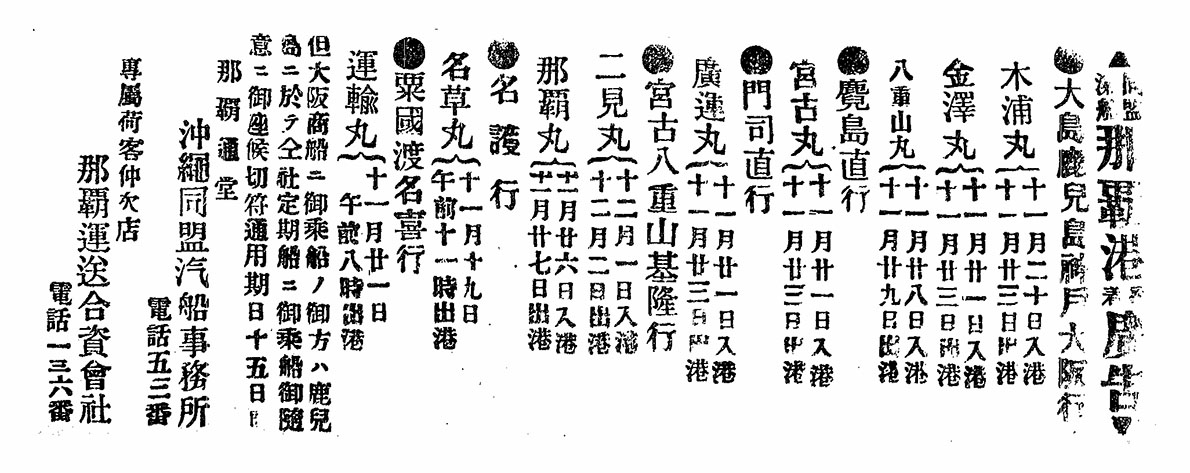 同盟汽船那覇港出帆廣告
●大島鹿兒島神戸大阪行
木浦丸
十一月二十日入港
十一月廿三日出港
金澤丸
十一月廿一日入港
十一月廿三日出港
八重山丸
十一月廿八日入港
十一月廿九日出港
●麑島直行
宮古丸
十一月廿一日入港
十一月廿三日出港
●門司直行
廣運丸
十一月廿一日入港
十一月廿三日出港
●宮古八重山基隆行
二見丸
十二月一日入港
十二月二日出港
那覇丸
十一月廿六日入港
十一月廿七日出港
●名護行
名草丸
十一月十九日
午前十一時出港
●粟國渡名喜行
運輸丸
十一月廿一日
午前八時出港
但大阪商船ニ御乘船ノ御方ハ鹿兒
島ニ於テ仝社定期船ニ御乘船御隨
意ニ御座候切符通用期日十五日間
那覇通堂
沖繩同盟汽船事務所
電話五三番
專屬荷客仲次店
那覇運送合資會社
電話一三六番